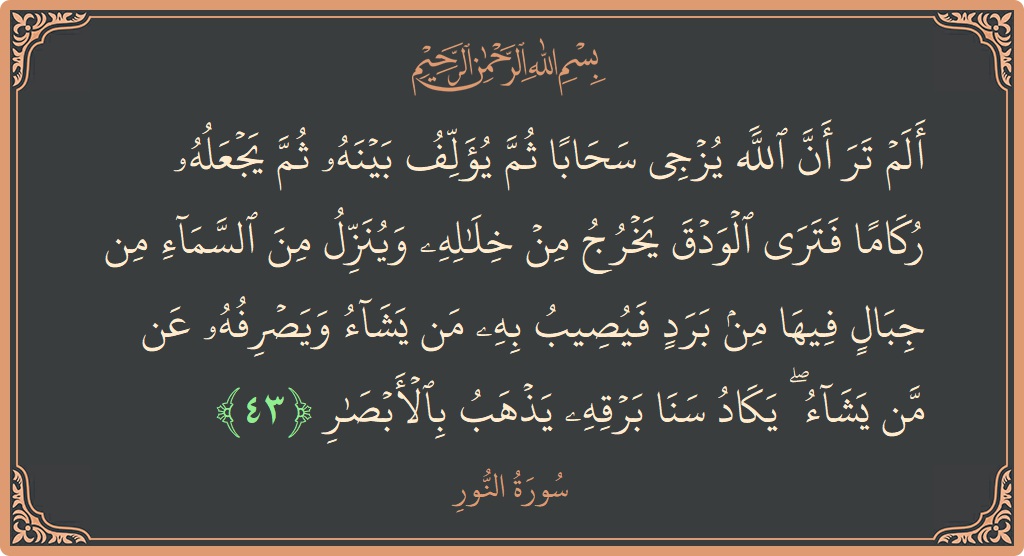 بِسْمِ اللَّهِ الرَّحْمَٰنِ الرَّحِيمِ
أَلَمْ تَرَ أَنَّ ٱللَّهَ يُزْجِى سَحَابًا ثُمَّ يُؤَلِّفُ بَيْنَهُۥ ثُمَّ يَجْعَلُهُۥ
رُكَامًا فَتَرَى ٱلْوَدْقَ يَخْرُجُ مِنْ خِلَٰلِهِۦ وَيُنَزِّلُ مِنَ ٱلسَّمَآءِ مِن
جِبَالٍ فِيهَا مِنۢ بَرَدٍ فَيُصِيبُ بِهِۦ مَن يَشَآءُ وَيَصْرِفُهُۥ عَن
مَّن يَشَآءُ ۖ يَكَادُ سَنَا بَرْقِهِۦ يَذْهَبُ بِٱلْأَبْصَٰرِ ﴿٤٣﴾
سُورَةُ النُّورِ